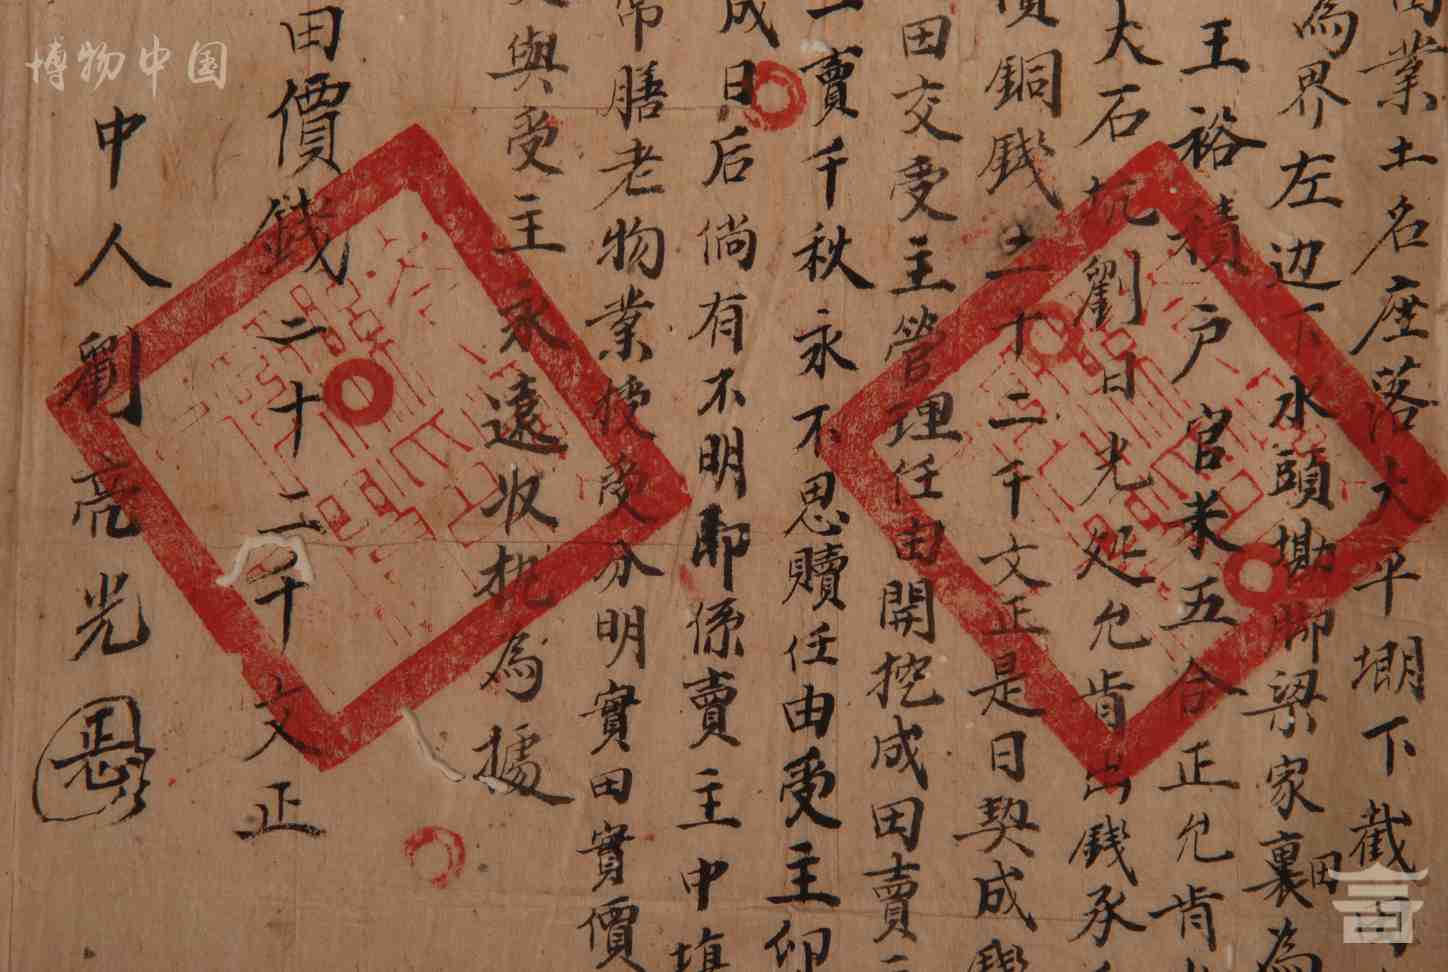 業土名座落大平塴下截
為界左边下水頭墈脚梁家裏田為
王裕積户官米五合正允肯
大石坑劉日光延允肯出錢承
價銅錢二十二千文正是日契成
田交受主管理任由開挖成因賣
一賣千秋永不思贖任由受主
成日后倘有不明即係賣主中
常膳老物業授受分明實田實價
與受主永遠收執為據
田價錢二十二千文正
中人劉亮光
博物中国